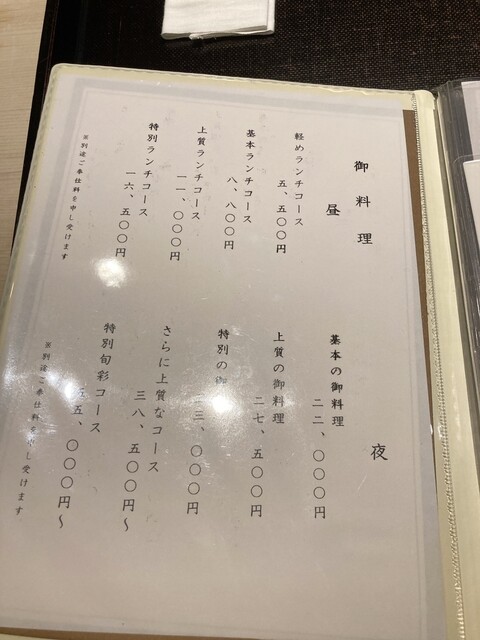 御料理
昼
軽めランチコース
五、五〇〇円
基本ランチコース
八、八〇〇円
上質ランチコース
一一、〇〇〇円
特別ランチコース
一六、五〇〇円
※別途ご奉仕料を申し受けます
夜
基本の御料理
二二、〇〇〇円
上質の御料理
二七、五〇〇円
特別の御
三、〇〇〇円
さらに上質なコース
三八、五〇〇円～
特別旬彩コース
五、〇〇〇円～
※別途ご奉仕料を申し受けます